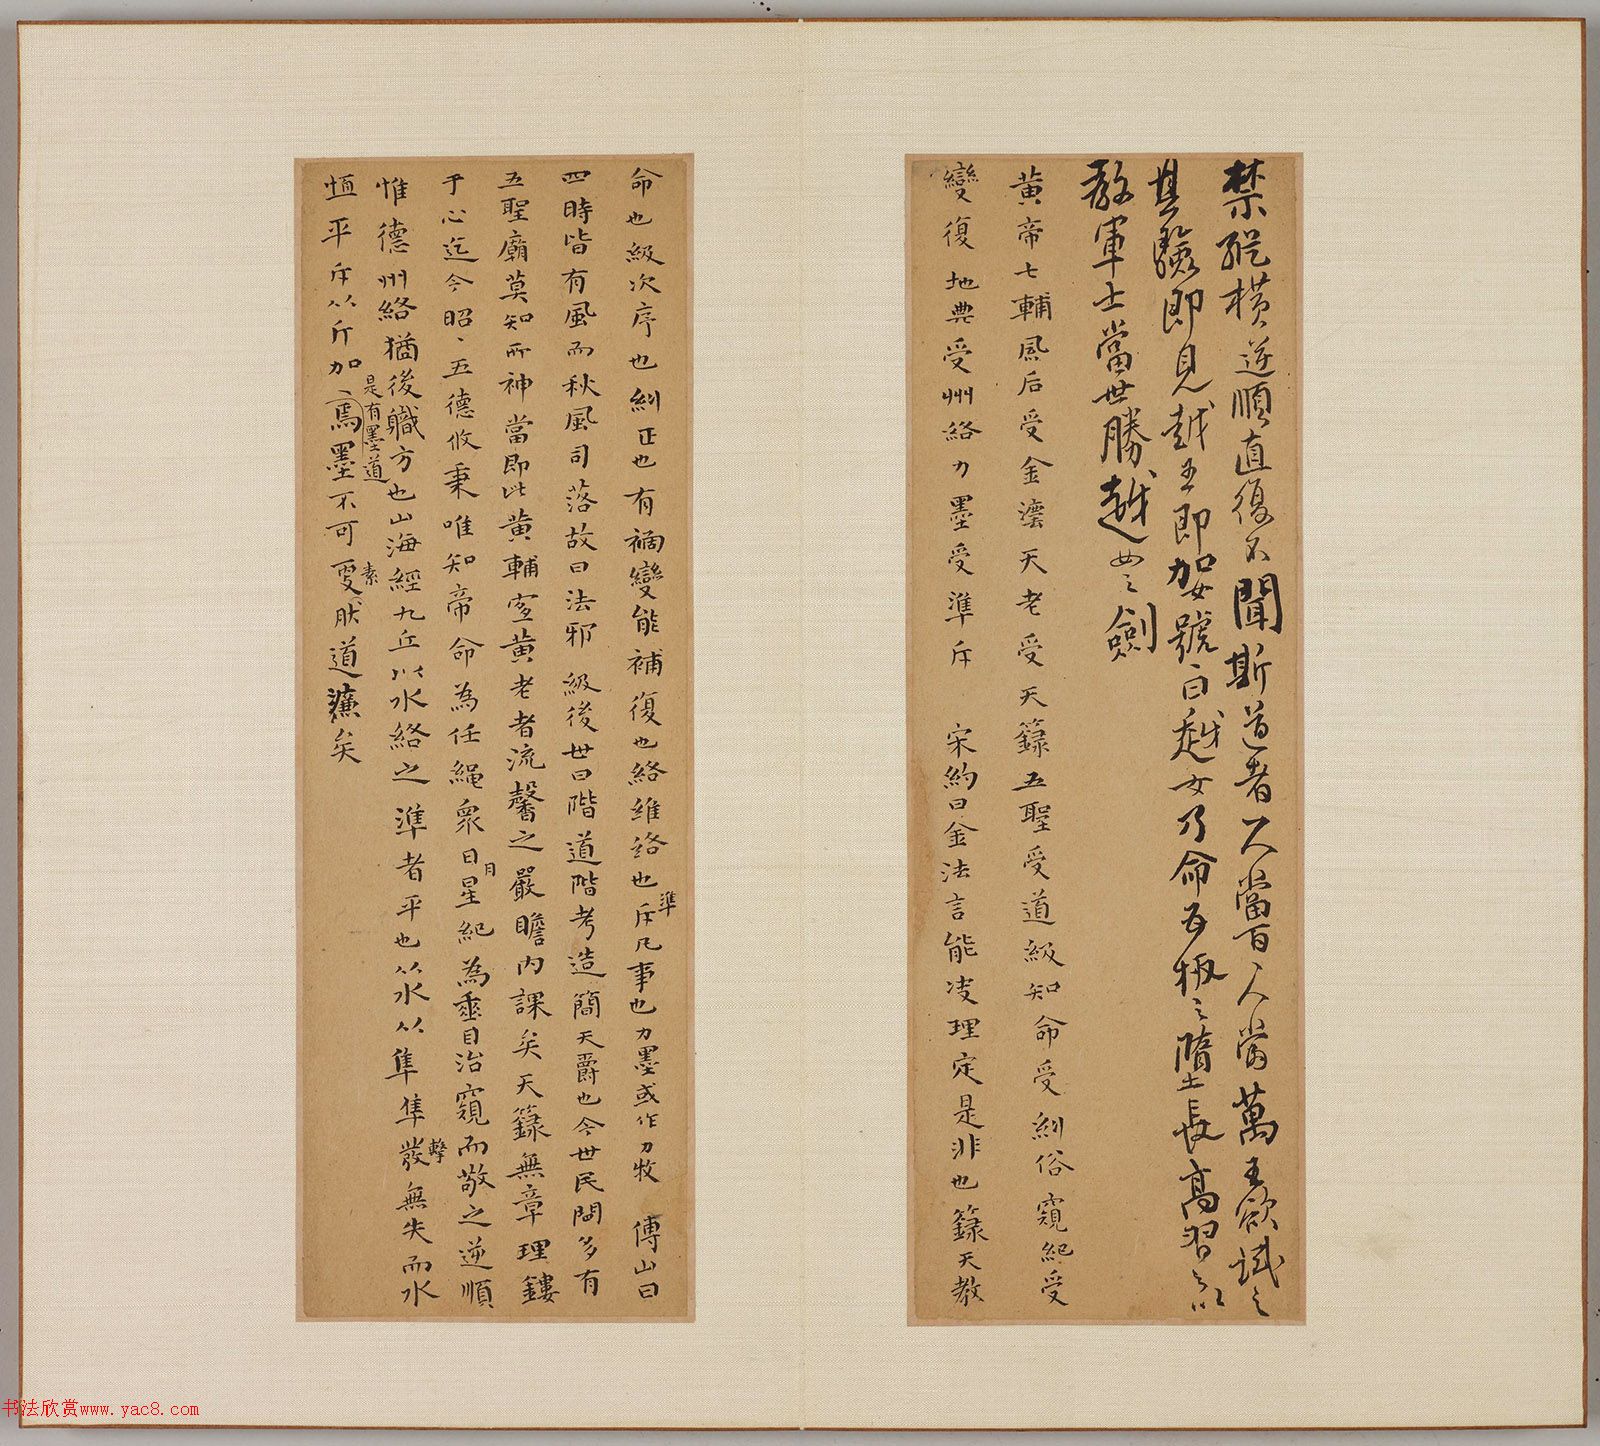 禁縱橫逆順直復不聞斯道者一人當百人當萬王欲試之
其驗即見越王即加女號〻曰越女乃命五板之隋土長高習之以
教軍士當世勝越女之劍
黃帝七輔風后受金濹天老受天籙五聖受道級知命受糾俗窺紀受
變復地典受州絡力墨受準斥 宋約曰金法言能決理定是非也籙天教
命也級次序也糾正也有禍變能補復也絡維絡也準斥凡事也力墨或作力牧 傅山曰
四時皆有風而秋風司落故曰法邪級後世曰階道階考造簡天爵也今世民間多有
五聖廟莫知所神當即此黃輔寔黃老者流馨之嚴瞻內課矣天籙無章理鏤
于心迄今昭〻五德攸秉唯知帝命為任繩衆日月星紀為垂目治窺而敬之逆順
惟德州絡猶後職方也山海經九丘以水絡之準者平也从水从隼隼發擊無失而水
恒平斥从斤加丶焉是有墨道墨不可叓素狀道濂矣
书法欣赏www.yac8.com